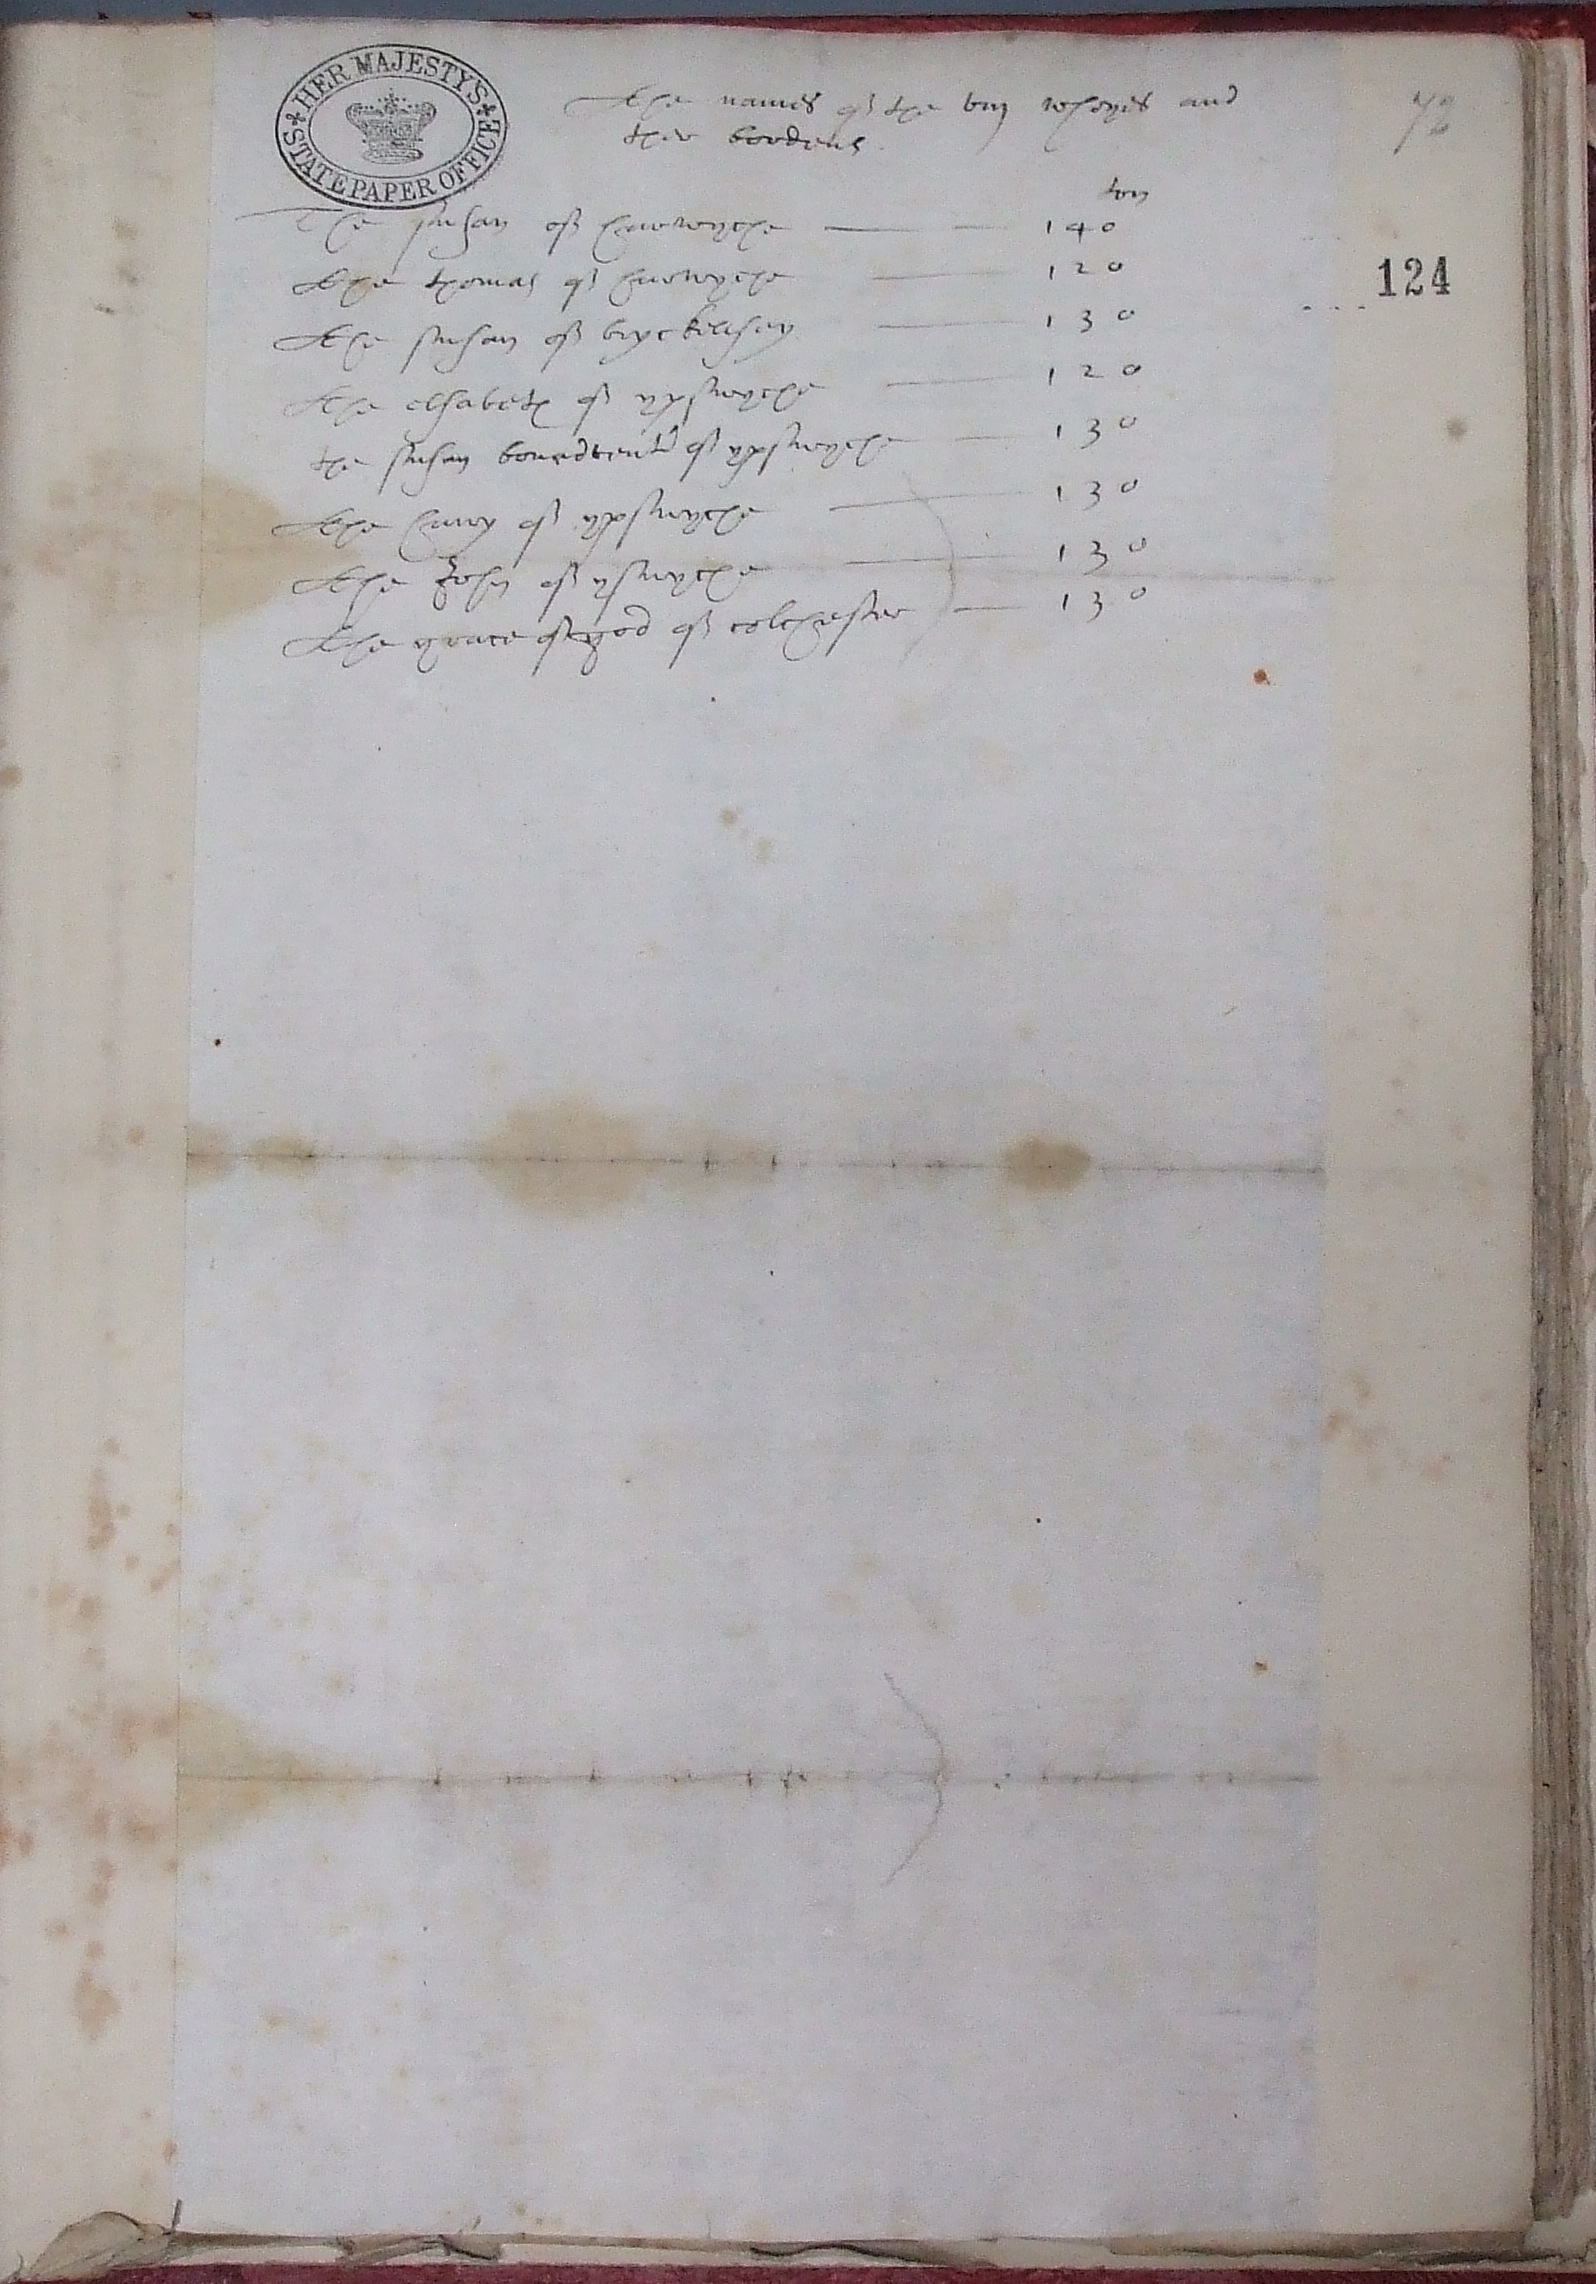 HER MAJESTY'S STATE PAPER OFFICE
The names of the viij shoyes and
ther bordens
72
ton
The susan of harwyche 140
The thomas of harwyche 120
124
The susan of bryckellsey 130
The elsabeth of ypswyche 120
the susan of ypswyche 130
The henry of ypswyche 130
The John of ypswyche 130
The grace of god of colchester 130